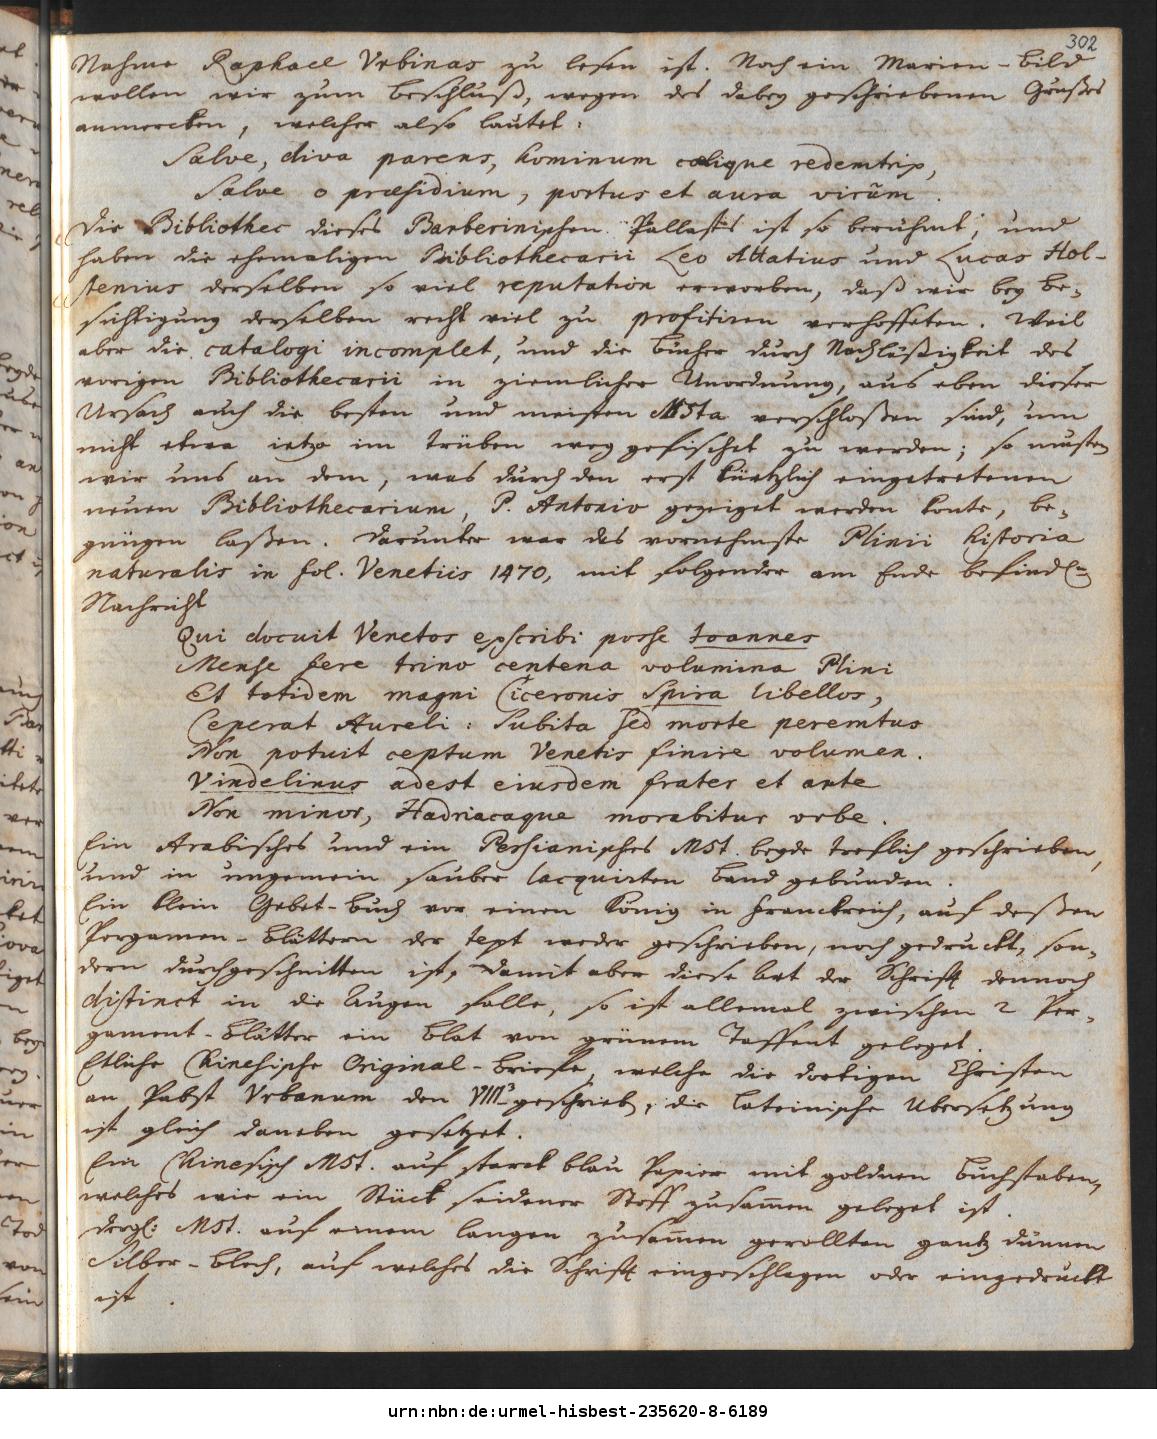 302
Nahme Raphael Vrbinas zu lesen ist. Noch ein Marien-bild
wollen wir zum beschluß, wegen des dabey geschriebenen Grußes
anmercken, welcher also lautet:
Salve, diva parens, hominum cœlique redemtrix,
Salve o præsidium, portus et aura virûm.
Die Bibliothec dieses Barberinischen Pallasts ist so berühmt, und
haben die ehemaligen Bibliothecarii Leo Allatius und Lucas Hol-
stenius derselben so viel reputation erworben, daß wir bey be-
sichtigung derselben recht viel zu profitiren verhoffeten. Weil
aber die catalogi incomplet, und die bücher durch Nachläßigkeit des
vorigen Bibliothecarii in ziemlicher Unordnung, aus eben dieser
Ursach auch die besten und meisten MSta verschloßen sind, um
nicht etwa ietzo im trüben weggefischet zu werden; so musten
wir uns an dem, was durch den erst kürtzlich eingetretenen
neuen Bibliothecarium, P. Antonio gezeiget werden konte, be-
gnügen laßen. Darunter war das vornehmste Plinii historia
naturalis in fol. Venetiis 1470, mit folgender am Ende befindl.
Nachricht
Qui docuit Venetos exscribi posse Ioannes
Mense fere trino centena volumina Plini
Et totidem magni Ciceronis Spira libellos,
Ceperat Aureli: subita sed morte peremtus
Non potuit ceptum Venetis finire volumen.
Vindelinus adest eiusdem frater et arte
Non minor, Hadriacaque morabitur urbe.
Ein Arabisches und ein Persianisches MSt. beyde treflich geschrieben,
und in ungemein sauber lacquirten band gebunden.
Ein klein Gebet-buch vor einen König in Franckreich, auf deßen
Pergamen-blättern der text weder geschrieben, noch gedruckt, son-
dern durchgeschnitten ist, damit aber diese Art der Schrift dennoch
distinct in die Augen falle, so ist allemal zwischen 2 Per-
gament-blätter ein blat von grünem Taffent geleget.
Etliche Chinesische Original-briefe, welche die dortigen Christen
an Pabst Vrbanum den VIII. geschrieben, die lateinische Ubersetzung
ist gleich daneben gesetzet.
Ein Chinesisch MSt. auf starck blau Papier mit goldnen buchstaben,
welches wie ein Stück seidener Stoff zusam̄en geleget ist.
dergl: MSt. auf einem langen zusam̄en gerollten gantz dünnen
Silber-blech, auf welches die Schrift eingeschlagen oder eingedruckt
ist.
urn:nbn:de:urmel-hisbest-235620-8-6189